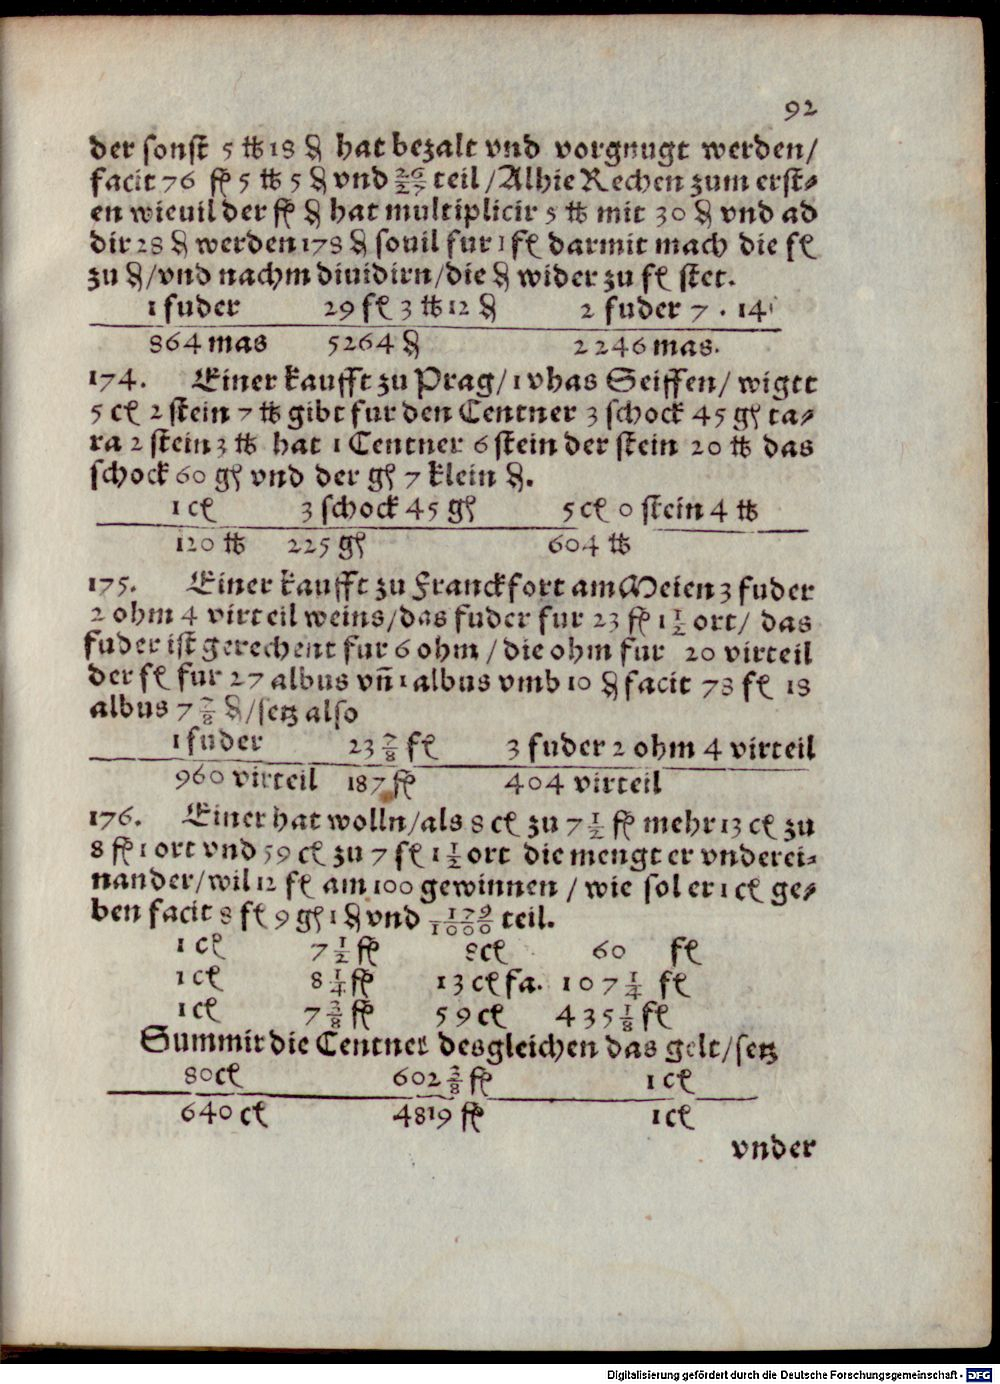 92
der sonst 5 ℔ 18 ₰ hat bezalt vnd vorgnugt werden/
facit 76 fl 5 ℔ 5 ₰ vnd 26/27 teil/Alhie Rechen zum erst-
en wieuil der fl ₰ hat multiplicir 5 ℔ mit 30 ₰ vnd ad
dir 28 ₰ werden 178 ₰ souil fur 1 fl darmit mach die fl
zu ₰/vnd nachm diuidirn/die ₰ wider zu fl stet.
1 fuder 29 fl 3 ℔ 12 ₰ 2 fuder 7 . 14
864 mas 5264 ₰ 2246 mas.
174. Einer kaufft zu Prag/1 vhas Seiffen/wigtt
5 ct 2 stein 7 ℔ gibt fur den Centner 3 schock 45 gl ta-
ra 2 stein 3 ℔ hat 1 Centner 6 stein der stein 20 ℔ das
schock 60 gl vnd der gl 7 klein ₰.
1 ct 3 schock 45 gl 5 ct 0 stein 4 ℔
120 ℔ 225 gl 604 ℔
175. Einer kaufft zu Franckfort am Meien 3 fuder
2 ohm 4 virteil weins/das fuder fur 23 fl 1 1/2 ort/ das
fuder ist gerechent fur 6 ohm/die ohm fur 20 virteil
der fl fur 27 albus vñ 1 albus vmb 10 ₰ facit 78 fl 18
albus 7 7/8 ₰/setz also
1 fuder 23 7/8 fl 3 fuder 2 ohm 4 virteil
960 virteil 187 fl 404 virteil
176. Einer hat wolln/als 8 ct zu 7 1/2 fl mehr 13 ct zu
8 fl 1 ort vnd 59 ct zu 7 fl 1 1/2 ort die mengt er vnderei-
nander/wil 12 fl am 100 gewinnen/wie sol er 1 ct ge-
ben facit 8 fl 9 gl 1 ₰ vnd 179/1000 teil.
1 ct 7 1/2 fl 8 ct 60 fl
1 ct 8 1/4 fl 13 ct fa. 107 1/4 fl
1 ct 7 3/8 fl 59 ct 435 1/8 fl
Summir die Centner desgleichen das gelt/setz
80 ct 602 3/8 fl 1 ct
640 ct 4819 fl 1 ct
vnder
Digitalisierung gefördert durch die Deutsche Forschungsgemeinschaft - DFG